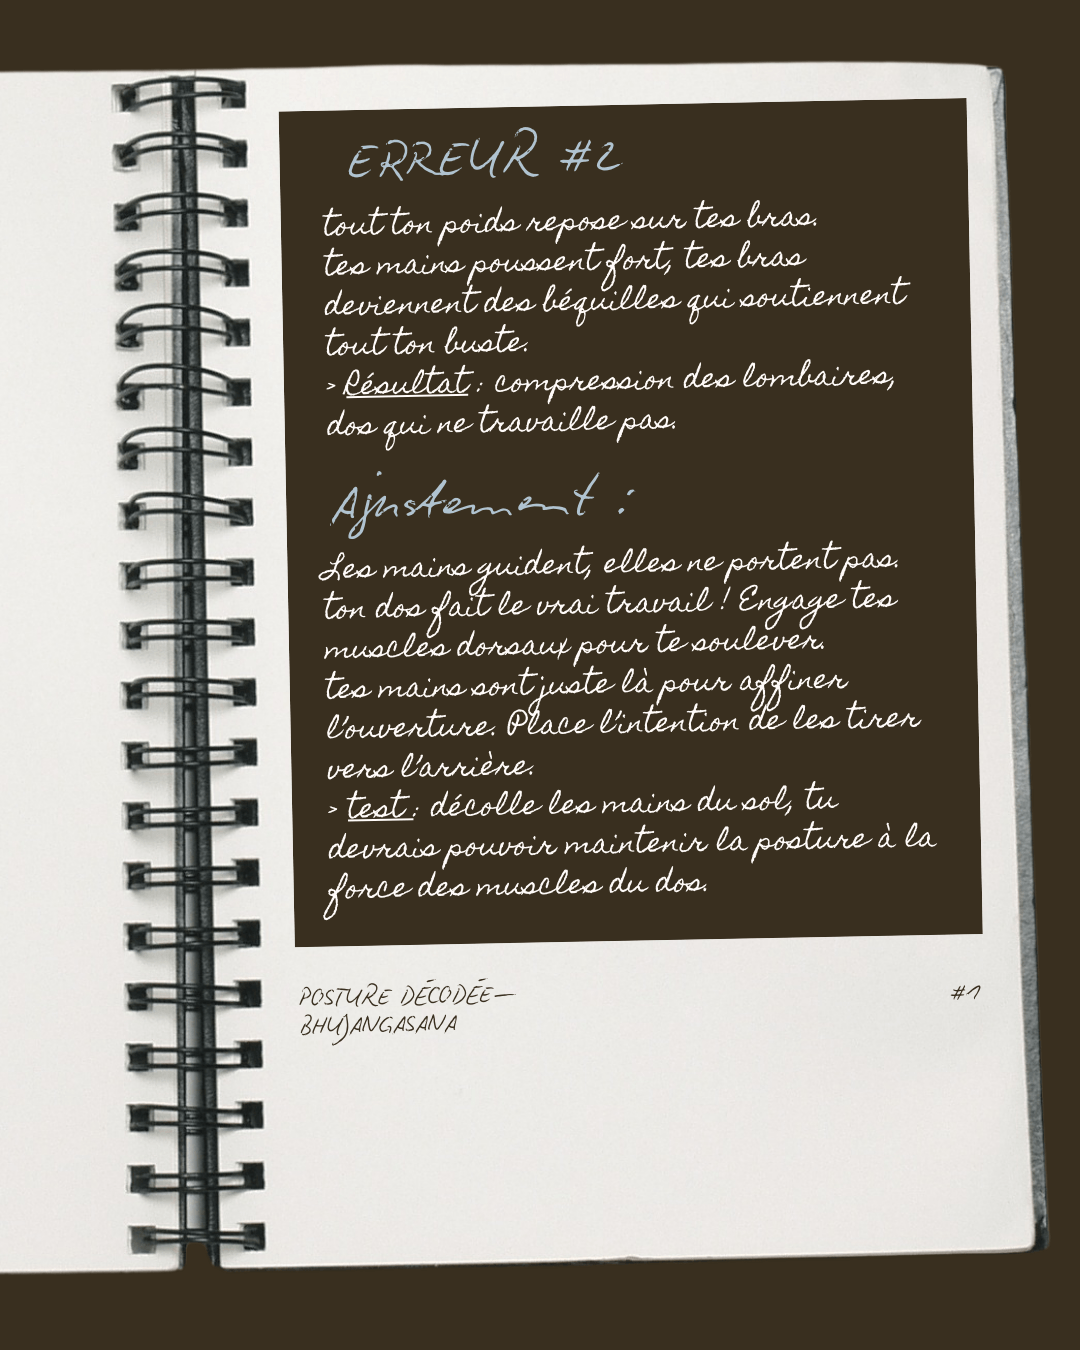 ERREUR #2
tout ton poids repose sur tes bras.
tes mains poussent fort, tes bras
deviennent des béquilles qui soutiennent
tout ton buste.
> Résultat : compression des lombaires,
dos qui ne travaille pas.
Ajustement :
Les mains guident, elles ne portent pas.
ton dos fait le vrai travail ! Engage tes
muscles dorsaux pour te soulever.
tes mains sont juste là pour affiner
l'ouverture. Place l'intention de les tirer
vers l'arrière.
> test : décolle les mains du sol, tu
devrais pouvoir maintenir la posture à la
force des muscles du dos.
POSTURE DÉCODÉE—
BHUJANGASANA
#1